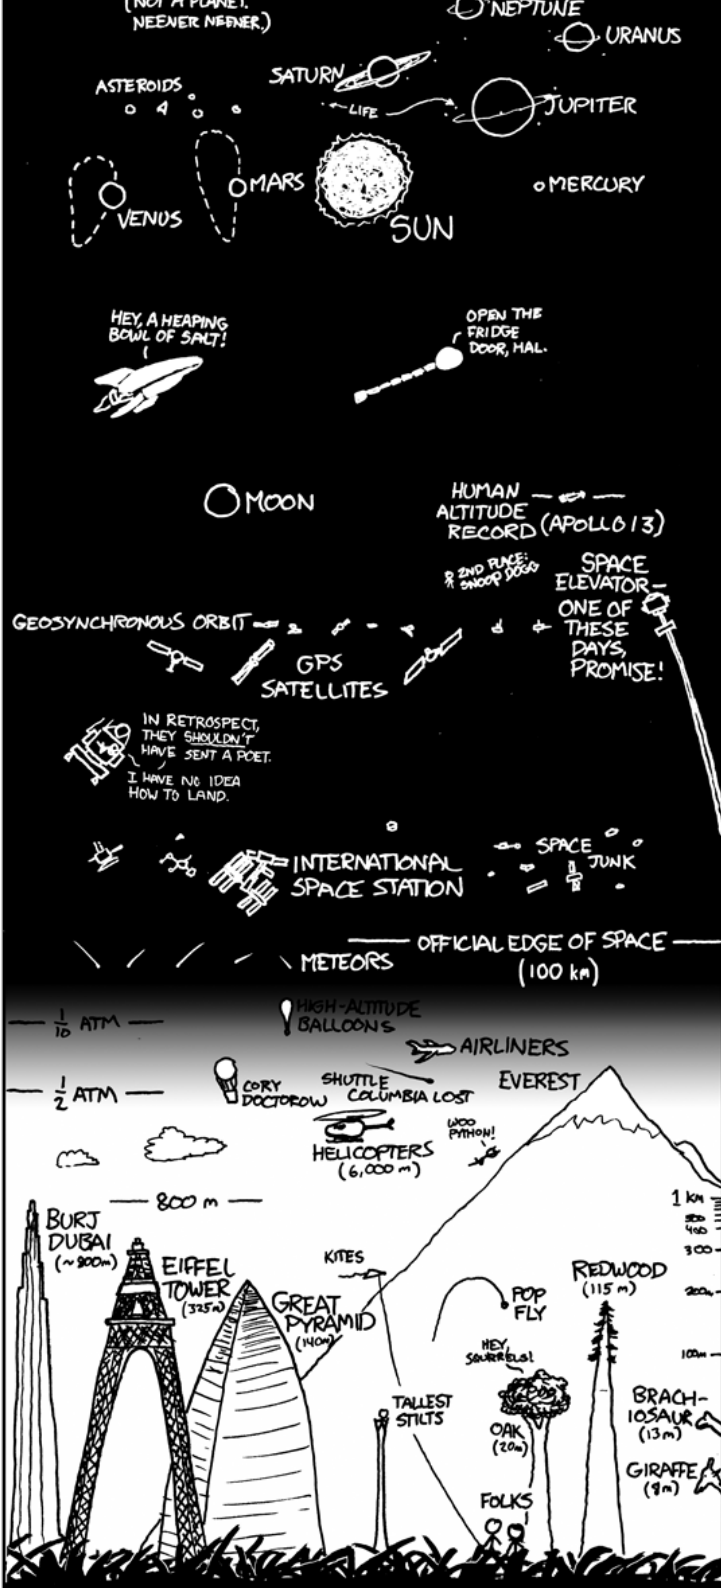 (NOT A PLANET.
NEENER NEENER.)
NEPTUNE
URANUS
SATURN
ASTEROIDS
LIFE
JUPITER
MARS
MERCURY
VENUS
SUN
HEY, A HEAPING
BOWL OF SALT!
OPEN THE
FRIDGE
DOOR, HAL.
MOON
HUMAN
ALTITUDE
RECORD (APOLLO 13)
2ND PLACE:
SNOOP DOGG
SPACE
ELEVATOR—
ONE OF
THESE
DAYS,
PROMISE!
GEOSYNCHRONOUS ORBIT
GPS
SATELLITES
IN RETROSPECT,
THEY SHOULDN'T
HAVE SENT A POET.
I HAVE NO IDEA
HOW TO LAND.
INTERNATIONAL
SPACE STATION
SPACE
JUNK
OFFICIAL EDGE OF SPACE
(100 km)
METEORS
HIGH-ALTITUDE
BALLOONS
1/10 ATM
AIRLINERS
1/2 ATM
CORY
DOCTOROW
SHUTTLE
COLUMBIA LOST
EVEREST
HELICOPTERS
(6,000 m)
WOO
PYTHON!
800 m
1 km
500
400
300
200m
100m
BURJ
DUBAI
(~800m)
EIFFEL
TOWER
(325m)
GREAT
PYRAMID
(140m)
KITES
POP
FLY
REDWOOD
(115 m)
HEY,
SQUIRRELS!
TALLEST
STILTS
OAK
(20m)
BRACH-
IOSAUR
(13m)
GIRAFFE
(8m)
FOLKS